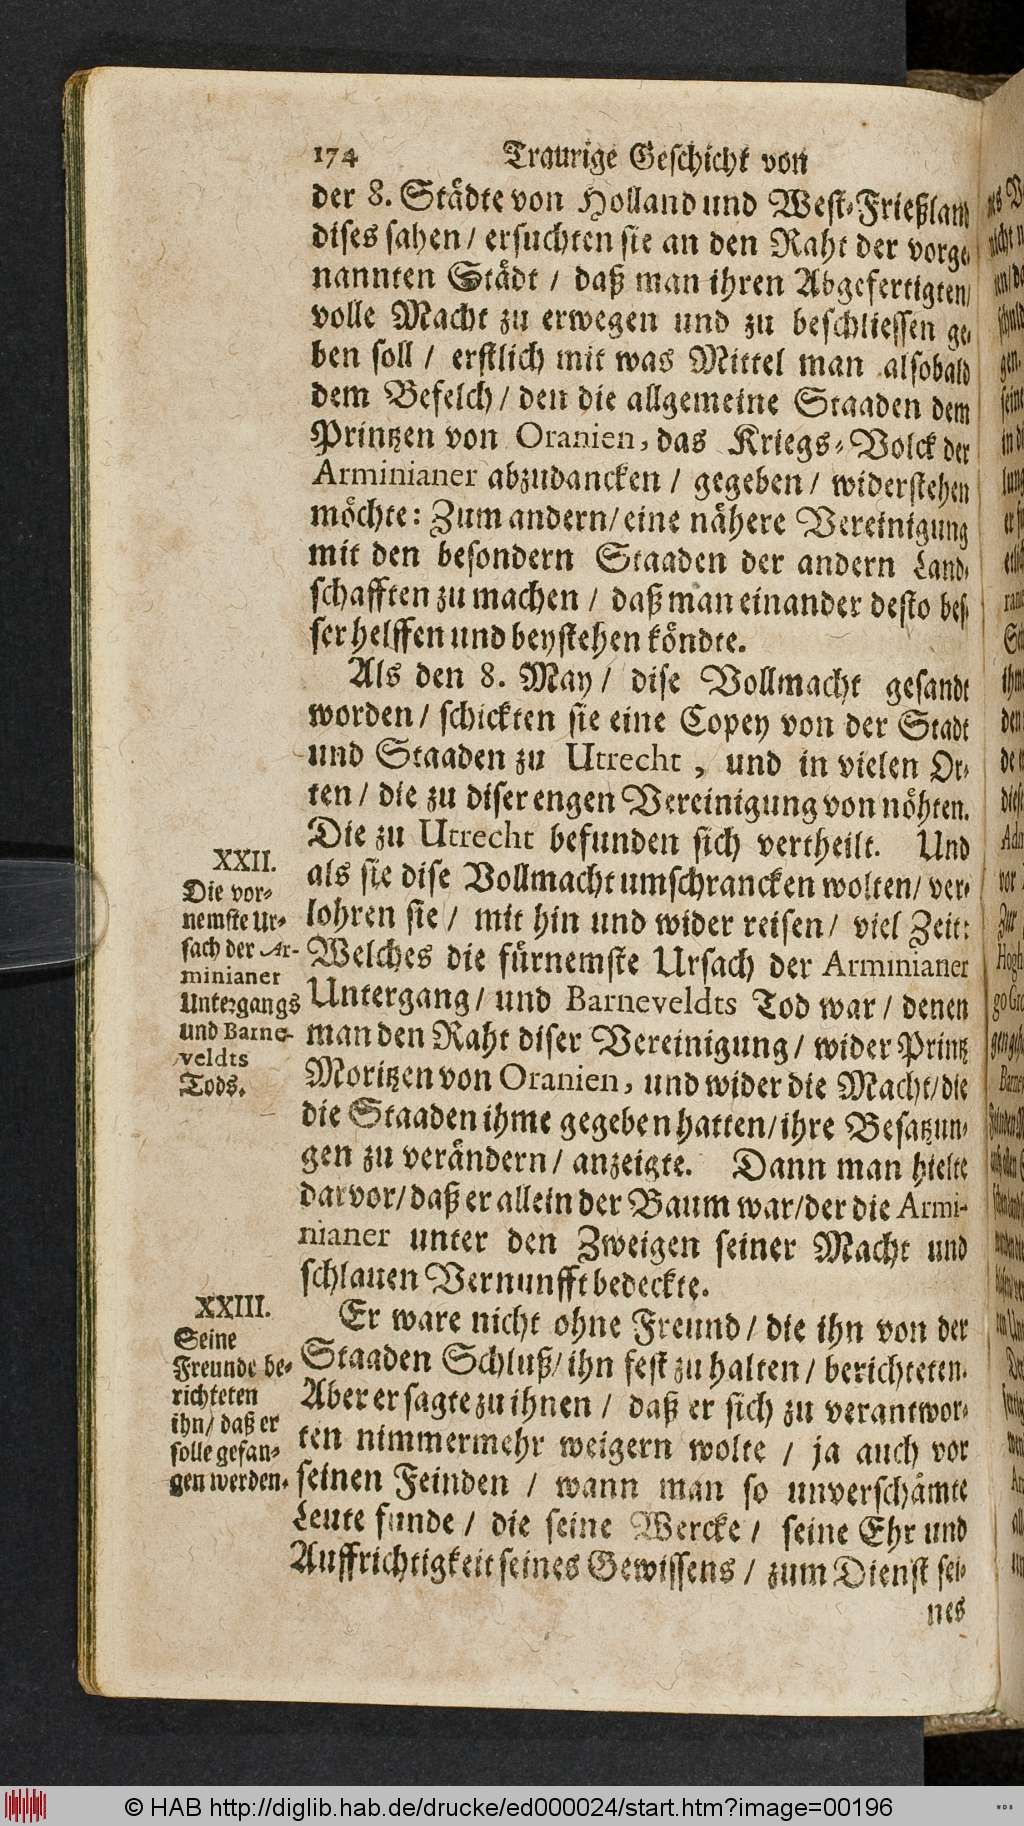 174 Traurige Geschicht von
der 8. Städte von Holland und West-Frießland
dises sahen / ersuchten sie an den Raht der vorge-
nannten Städt / daß man ihren Abgefertigten /
volle Macht zu erwegen und zu beschliessen ge-
ben soll / erstlich mit was Mittel man alsobald
dem Befelch / den die allgemeine Staaden dem
Printzen von Oranien, das Kriegs-Volck der
Arminianer abzudancken / gegeben / widerstehen
möchte: Zum andern / eine nähere Vereinigung
mit den besondern Staaden der andern Land-
schafften zu machen / daß man einander desto bes-
ser helffen und beystehen köndte.
Als den 8. May / dise Vollmacht gesandt
worden / schickten sie eine Copey von der Stadt
und Staaden zu Utrecht, und in vielen Or-
ten / die zu diser engen Vereinigung von nöhten.
Die zu Utrecht befunden sich vertheilt. Und
als sie dise Vollmacht umschrancken wolten / ver-
lohren sie / mit hin und wider reisen / viel Zeit:
Welches die fürnemste Ursach der Arminianer
Untergang / und Barneveldts Tod war / denen
man den Raht diser Vereinigung / wider Printz
Moritzen von Oranien, und wider die Macht / die
die Staaden ihme gegeben hatten / ihre Besatzun-
gen zu verändern / anzeigte. Dann man hielte
darvor / daß er allein der Baum war / der die Armi-
nianer unter den Zweigen seiner Macht und
schlauen Vernunfft bedeckte.
XXII.
Die vor-
nemste Ur-
sach der Ar-
minianer
Untergangs
und Barne-
veldts
Tods.
Er ware nicht ohne Freund / die ihn von der
Staaden Schluß / ihn fest zu halten / berichteten.
Aber er sagte zu ihnen / daß er sich zu verantwor-
ten nimmermehr weigern wolte / ja auch vor
seinen Feinden / wann man so unverschämte
Leute funde / die seine Wercke / seine Ehr und
Auffrichtigkeit seines Gewissens / zum Dienst sei-
nes
XXIII.
Seine
Freunde be-
richteten
ihn / daß er
solle gefan-
gen werden.
© HAB http://diglib.hab.de/drucke/ed000024/start.htm?image=00196